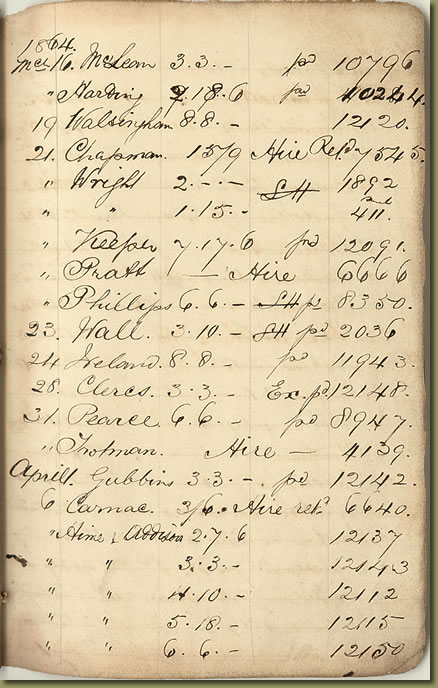 1864.
Mch 16. McLean 3.3.– pd 10796
" Harding 2.18.6 pd 10284.
19 Walsingham 8.8.– 12120.
21. Chapman. 15/9 Hire Retd 7545.
" Wright 2.–.– SH 1892
" " 1.15.– 411.
" Keeper 7.17.6 pd 12091.
" Pratt — Hire 6666
" Phillips 6.6.– SH pd 8350.
23. Wall. 3.10.– SH pd 2036
24 Ireland. 8.8.– pd 11943.
28. Clercs. 3.3.– Ex. pd 12148.
31. Pearce. 6.6.– pd 8947.
" Trotman. Hire — 4139.
April 1. Gubbins 3.3.–. pd 12142.
6 Carnac. 3/6. Hire retd 6640.
" Aime & Addison 2.7.6 12137
" " 3.3.– 12143
" " 4.10.– 12112
" " 5.18.– 12115
" " 6.6.– 12150